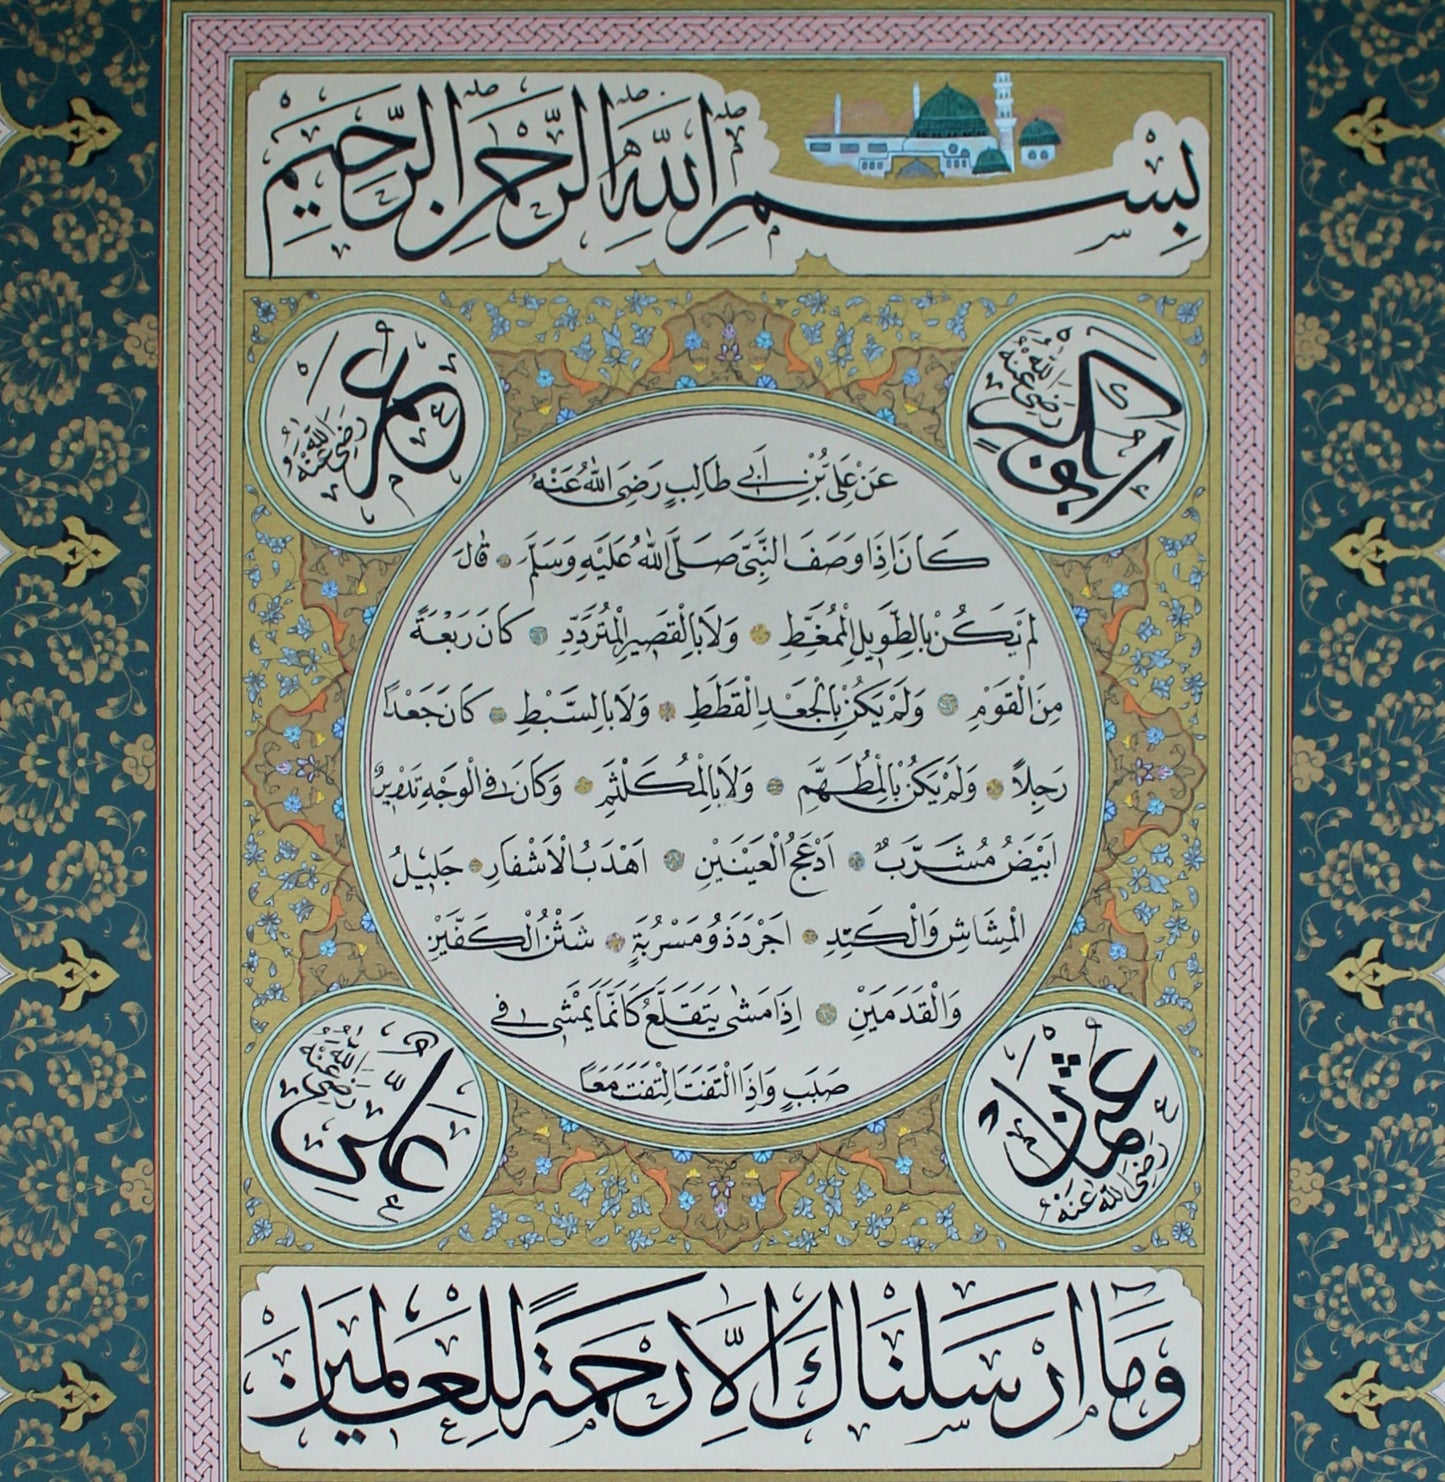 بِسْمِ اللّٰهِ الرَّحْمٰنِ الرَّحِيمِ
ابوبكر رَضِيَ اللّٰهُ عَنْهُ
عمر رَضِيَ اللّٰهُ عَنْهُ
عَنْ عَلِيِّ بْنِ اَبِي طَالِبٍ رَضِيَ اللّٰهُ عَنْهُ
كَانَ اِذَا وَصَفَ النَّبِيَّ صَلَّى اللّٰهُ عَلَيْهِ وَسَلَّمَ قَالَ
لَمْ يَكُنْ بِالطَّوِيلِ الْمُمَغَّطِ وَلَا بِالْقَصِيرِ الْمُتَرَدِّدِ كَانَ رَبْعَةً
مِنَ الْقَوْمِ وَلَمْ يَكُنْ بِالْجَعْدِ الْقَطَطِ وَلَا بِالسَّبْطِ كَانَ جَعْدًا
رَجِلًا وَلَمْ يَكُنْ بِالْمُطَهَّمِ وَلَا بِالْمُكَلْثَمِ وَكَانَ فِي الْوَجْهِ تَدْوِيرٌ
اَبْيَضُ مُشَرَّبٌ اَدْعَجُ الْعَيْنَيْنِ اَهْدَبُ الْاَشْفَارِ جَلِيلُ
الْمُشَاشِ وَالْكَتَدِ اَجْرَدُ ذُو مَسْرُبَةٍ شَثْنُ الْكَفَّيْنِ
وَالْقَدَمَيْنِ اِذَا مَشٰى يَتَقَلَّعُ كَاَنَّمَا يَمْشِي فِي
صَبَبٍ وَاِذَا الْتَفَتَ الْتَفَتَ مَعًا
عثمان رَضِيَ اللّٰهُ عَنْهُ
علي رَضِيَ اللّٰهُ عَنْهُ
وَمَا اَرْسَلْنَاكَ اِلَّا رَحْمَةً لِلْعَالَمِينَ